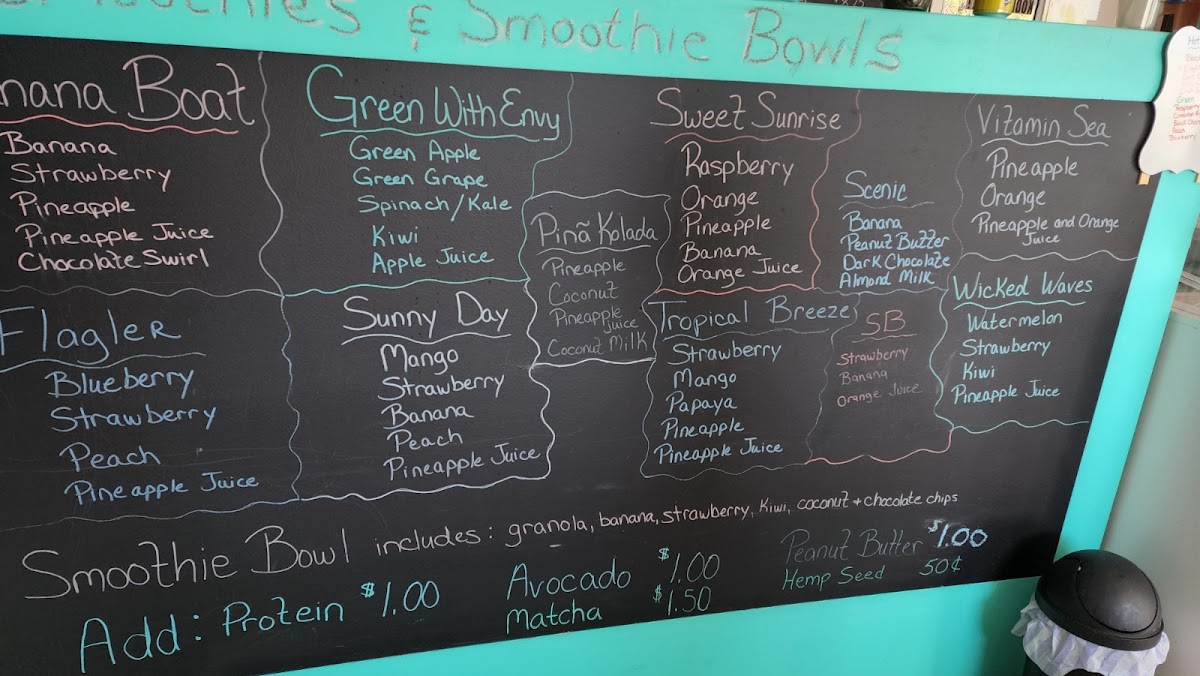 & Smoothie Bowls
Boat
Banana
Strawberry
Pineapple
Pineapple Juice
Chocolate Swirl
Green With Envy
Green Apple
Green Grape
Spinach/Kale
Kiwi
Apple Juice
Pinã Kolada
Pineapple
Coconut
Pineapple
juice
Coconut Milk
Sweet Sunrise
Raspberry
Orange
Pineapple
Banana
Orange Juice
Scenic
Banana
Peanut Butter
Dark Chocolate
Almond Milk
Vitamin Sea
Pineapple
Orange
Pineapple and Orange
Juice
Flagler
Blueberry
Strawberry
Peach
Pineapple Juice
Sunny Day
Mango
Strawberry
Banana
Peach
Pineapple Juice
Tropical Breeze
Strawberry
Mango
Papaya
Pineapple
Pineapple Juice
SB
Strawberry
Banana
Orange Juice
Wicked Waves
Watermelon
Strawberry
Kiwi
Pineapple Juice
Smoothie Bowl includes: granola, banana, strawberry, Kiwi, coconut + chocolate chips
Add: Protein $1.00
Avocado $1.00
Matcha $1.50
Peanut Butter $1.00
Hemp Seed 50¢